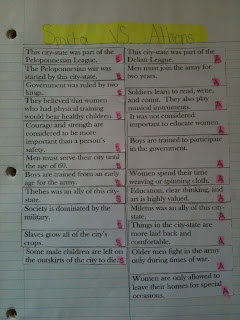 Sparta VS Athens
This city-state was part of the
Peloponnesian League. S
The Peloponnesian war was
started by this city-state. S
Government was ruled by two
kings. S
They believed that women
who had physical training
would bear healthy children. S
Courage and strength are
considered to be more
important than a person's
safety. S
Men must serve their city until
the age of 60. S
Boys are trained from an early
age for the army. S
Thebes was an ally of this city-
state. S
Society is dominated by the
military. S
Slaves grow all of the city's
crops. S
Some male children are left on
the outskirts of the city to die. S
This city-state was part of the
Delian League. A
Men must join the army for
two years. A
Soldiers learn to read, write,
and count. They also play
musical instruments. A
It was not considered
important to educate women. A
Boys are trained to participate
in the government. A
Women spend their time
weaving or spinning cloth. A
Education, clear thinking, and
art is highly valued. A
Miletus was an ally of this city-
state. A
Things in the city-state are
more laid back and
comfortable. A
Older men fight in the army
only during times of war. A
Women are only allowed to
leave their homes for special
occasions. A